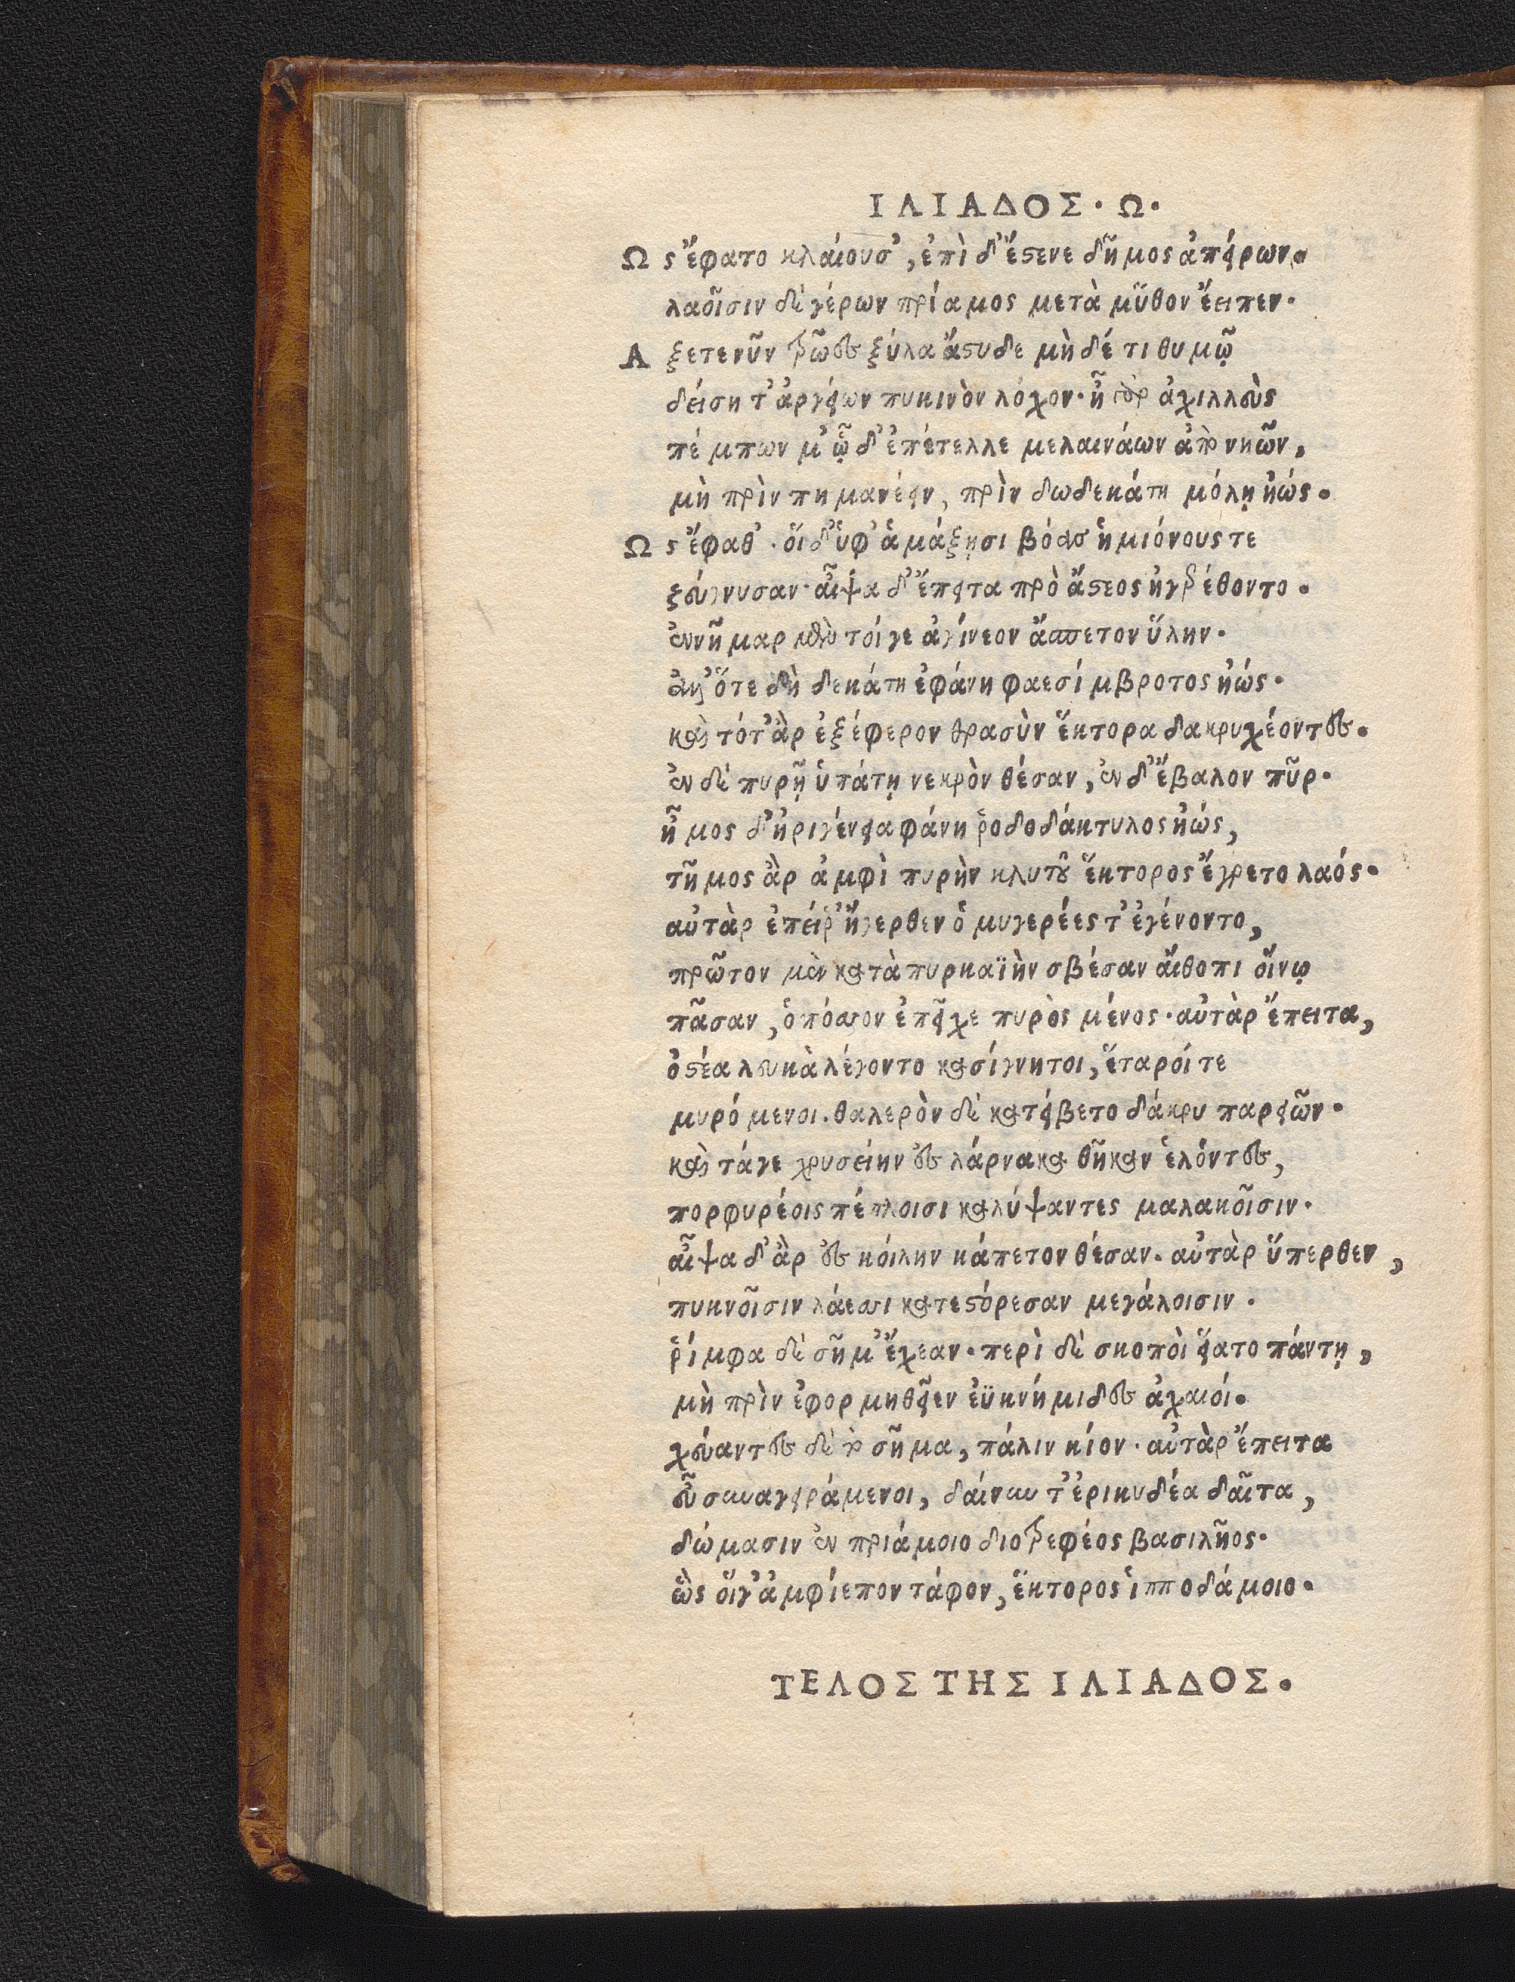 ΙΛΙΑΔΟΣ · Ω ·
Ως ἔφατο κλαίουσ', ἐπὶ δ' ἔστενε δῆμος ἀπείρων.
λαοῖσιν δὲ γέρων πρίαμος μετὰ μῦθον ἔειπεν·
Αξετε νῦν τρῶες ξύλα ἄστυδε μὴ δέ τι θυμῷ
δείση τ' ἀργείων πυκινὸν λόχον· ἦ γὰρ ἀχιλλεὺς
πέμπων μ' ὧδ' ἐπέτελλε μελαινάων ἀπὸ νηῶν,
μὴ πρὶν πημανέειν, πρὶν δωδεκάτη μόλῃ ἠώς.
Ως ἔφαθ'· οἵ δ' ὑφ' ἁμάξῃσι βόασ ἡμιόνους τε
ζεύγνυσαν· αἶψα δ' ἔπειτα πρὸ ἄστεος ἠγερέθοντο.
ἐννῆμαρ μὲν τοίγε ἀγίνεον ἄσπετον ὕλην·
ἀλλ' ὅτε δὴ δεκάτη ἐφάνη φαεσίμβροτος ἠώς·
καὶ τότ' ἂρ ἐξέφερον θρασὺν ἕκτορα δακρυχέοντες.
ἐν δὲ πυρῇ ὑπάτῃ νεκρὸν θέσαν, ἐν δ' ἔβαλον πῦρ·
ἦμος δ' ἠριγένεια φάνη ῥοδοδάκτυλος ἠώς,
τῆμος ἂρ ἀμφὶ πυρὴν κλυτοῦ ἕκτορος ἔγρετο λαός·
αὐτὰρ ἐπεί ῥ' ἤγερθεν ὁμυγερέες τ' ἐγένοντο,
πρῶτον μὲν κατὰ πυρκαϊὴν σβέσαν αἴθοπι οἴνῳ
πᾶσαν, ὁπόσσον ἐπεῖχε πυρὸς μένος· αὐτὰρ ἔπειτα,
ὀστέα λευκὰ λέγοντο κασίγνητοι, ἕταροί τε
μυρόμενοι. θαλερὸν δὲ κατείβετο δάκρυ παρειῶν·
καὶ τάγε χρυσείην ἐς λάρνακα θῆκαν ἑλόντες,
πορφυρέοις πέπλοισι καλύψαντες μαλακοῖσιν·
αἶψα δ' ἂρ ἐς κοίλην κάπετον θέσαν. αὐτὰρ ὕπερθεν,
πυκνοῖσιν λάεσσι κατεστόρεσαν μεγάλοισιν·
ῥίμφα δὲ σῆμ' ἔχεαν. περὶ δὲ σκοποὶ εἵατο πάντῃ,
μὴ πρὶν ἐφορμηθεῖεν ἐϋκνήμιδες ἀχαιοί.
χεύαντες δὲ τὸ σῆμα, πάλιν κίον· αὐτὰρ ἔπειτα
εὖ συναγειράμενοι, δαίνυν τ' ἐρικυδέα δαῖτα,
δώμασιν ἐν πριάμοιο διοτρεφέος βασιλῆος·
ὣς οἵγ' ἀμφίεπον τάφον, ἕκτορος ἱπποδάμοιο.
ΤΕΛΟΣ ΤΗΣ ΙΛΙΑΔΟΣ.